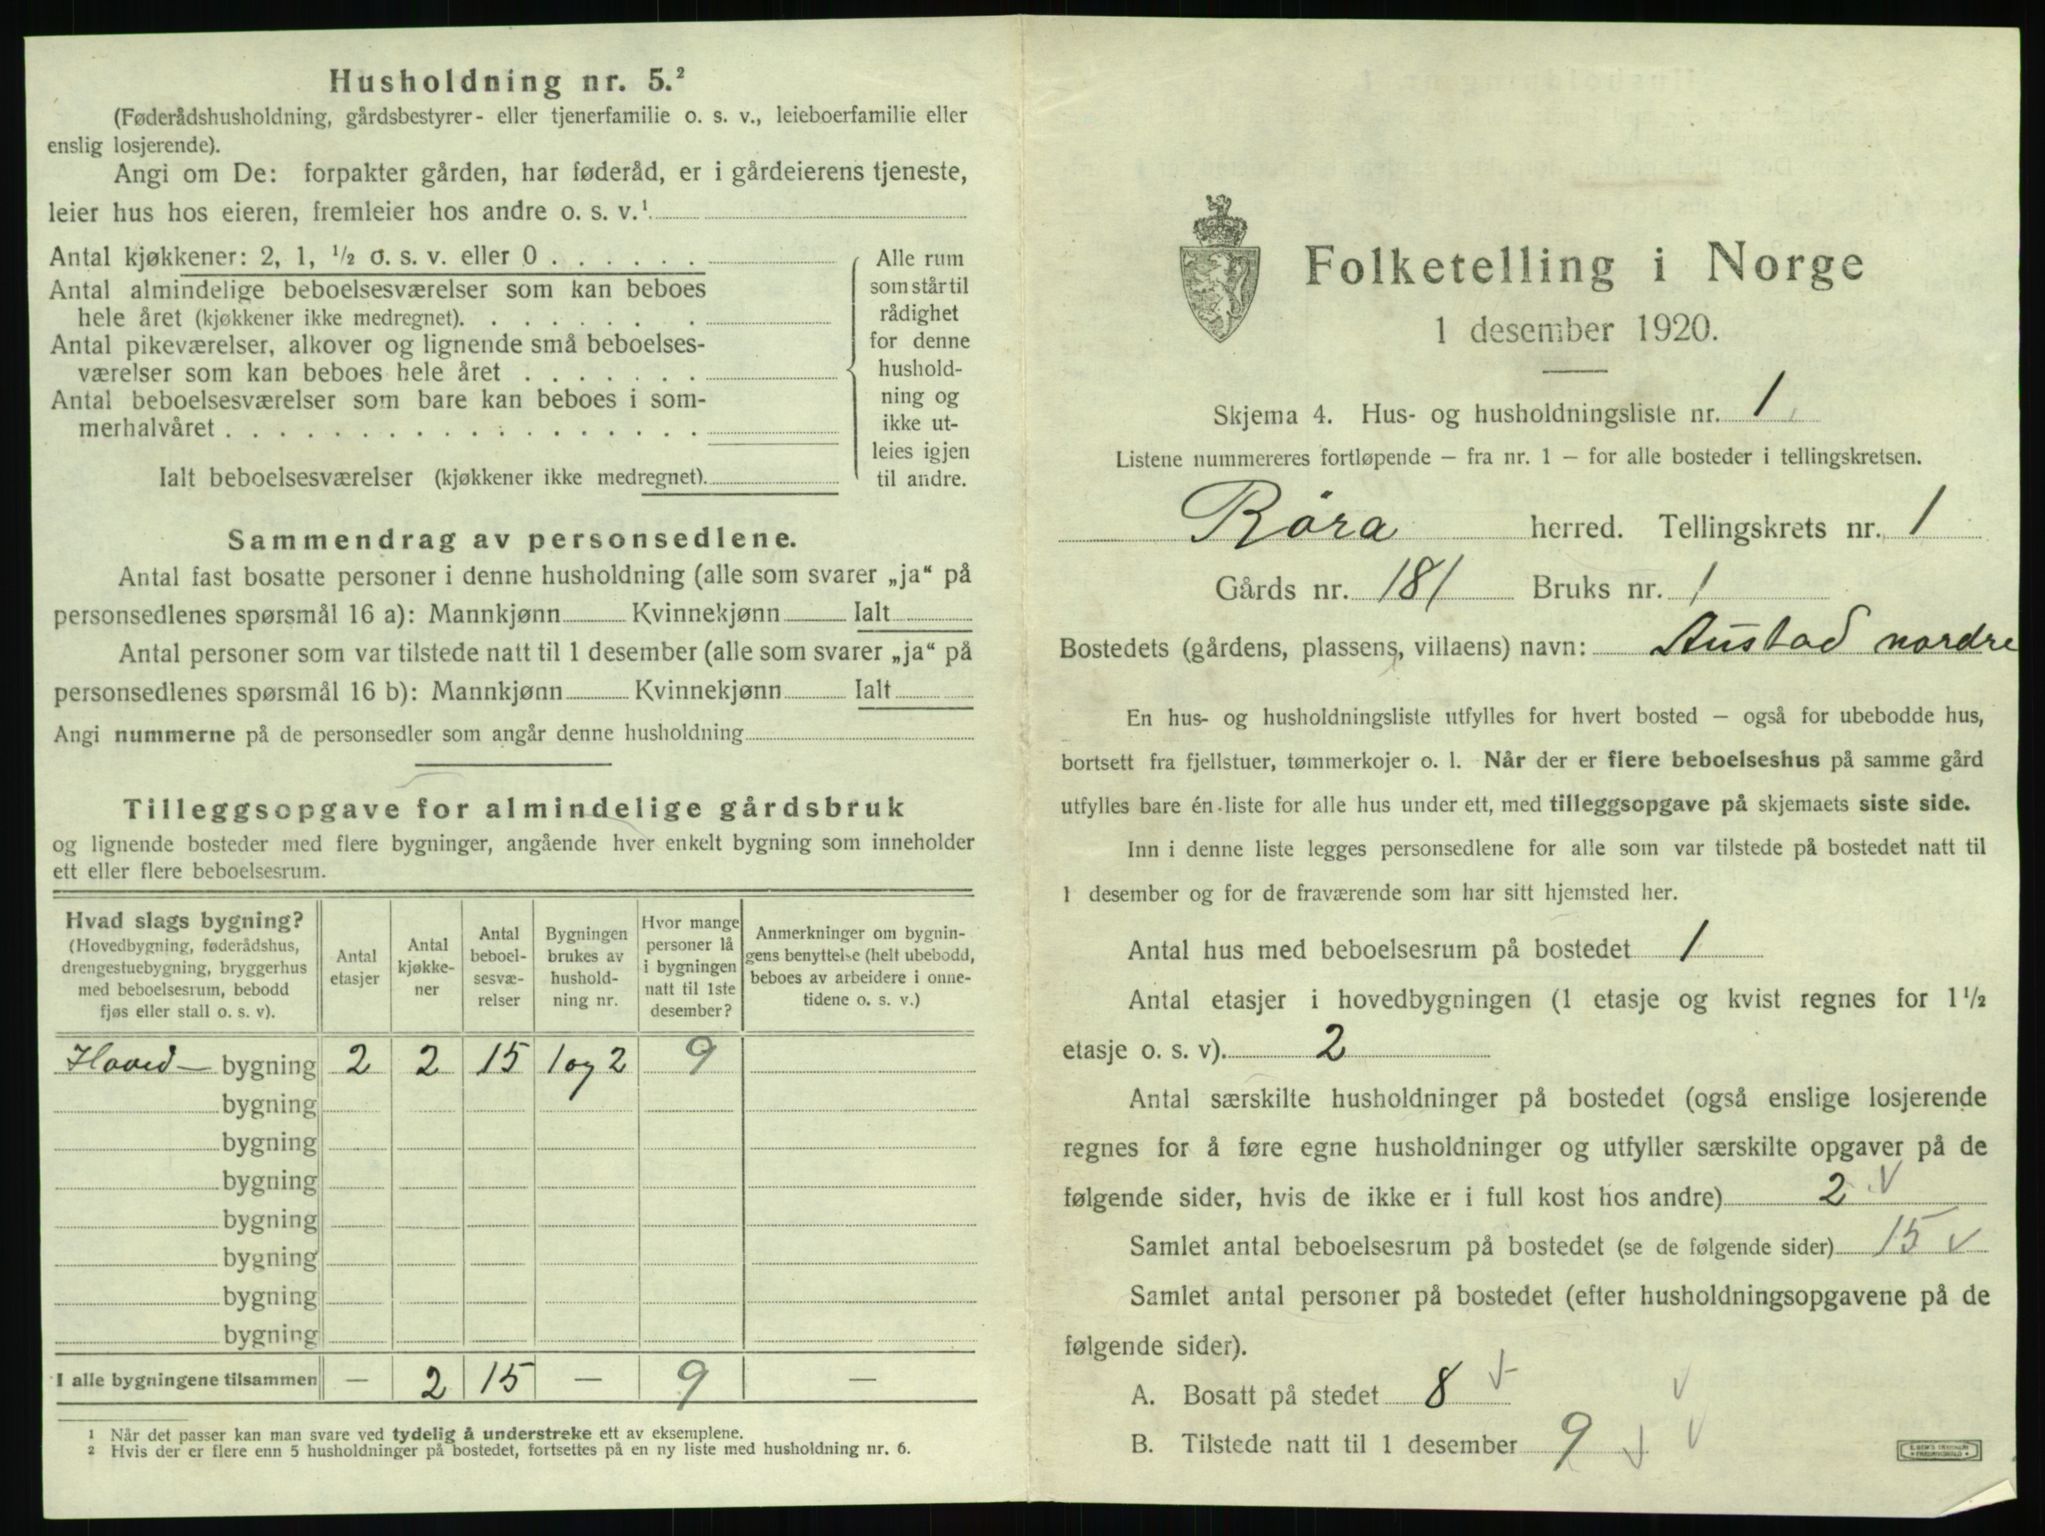 Husholdning nr. 5.²
(Føderådshusholdning, gårdsbestyrer- eller tjenerfamilie o. s. v., leieboerfamilie eller
enslig losjerende).
Angi om De: forpakter gården, har føderåd, er i gårdeierens tjeneste,
leier hus hos eieren, fremleier hos andre o. s. v.¹
Antal kjøkkener: 2, 1, ½ o. s. v. eller 0 . . . . . .
Antal almindelige beboelsesværelser som kan beboes
hele året (kjøkkener ikke medregnet). . . . . . . .
Antal pikeværelser, alkover og lignende små beboelses-
værelser som kan beboes hele året . . . . . . .
Antal beboelsesværelser som bare kan beboes i som-
merhalvåret . . . . . . . . . . . . . . . . . .
Ialt beboelsesværelser (kjøkkener ikke medregnet).
Alle rum
som står til
rådighet
for denne
hushold-
ning og
ikke ut-
leies igjen
til andre.
Sammendrag av personsedlene.
Antal fast bosatte personer i denne husholdning (alle som svarer „ja“ på
personsedlenes spørsmål 16 a): Mannkjønn Kvinnekjønn Ialt
Antal personer som var tilstede natt til 1 desember (alle som svarer „ja“ på
personsedlenes spørsmål 16 b): Mannkjønn Kvinnekjønn Ialt
Angi nummerne på de personsedler som angår denne husholdning
Tilleggsopgave for almindelige gårdsbruk
og lignende bosteder med flere bygninger, angående hver enkelt bygning som inneholder
ett eller flere beboelsesrum.
Hvad slags bygning?
(Hovedbygning, føderådshus,
drengestuebygning, bryggerhus
med beboelsesrum, bebodd
fjøs eller stall o. s. v).
Antal
etasjer
Antal
kjøkke-
ner
Antal
beboel-
sesvæ-
relser
Bygningen
brukes av
hushold-
ning nr.
Hvor mange
personer lå
i bygningen
natt til 1ste
desember?
Anmerkninger om bygnin-
gens benyttelse (helt ubebodd,
beboes av arbeidere i onne-
tidene o. s. v.)
Hoved- bygning 2 2 15 1 og 2 9
bygning
bygning
bygning
bygning
bygning
bygning
bygning
I alle bygningene tilsammen — 2 15 — 9 —
¹ Når det passer kan man svare ved tydelig å understreke ett av eksemplene.
² Hvis der er flere enn 5 husholdninger på bostedet, fortsettes på en ny liste med husholdning nr. 6.
Folketelling i Norge
1 desember 1920.
Skjema 4. Hus- og husholdningsliste nr. 1
Listene nummereres fortløpende – fra nr. 1 – for alle bosteder i tellingskretsen.
Röra herred. Tellingskrets nr. 1
Gårds nr. 181 Bruks nr. 1
Bostedets (gårdens, plassens, villaens) navn: Austad nordre
En hus- og husholdningsliste utfylles for hvert bosted – også for ubebodde hus,
bortsett fra fjellstuer, tømmerkojer o. l. Når der er flere beboelseshus på samme gård
utfylles bare én liste for alle hus under ett, med tilleggsopgave på skjemaets siste side.
Inn i denne liste legges personsedlene for alle som var tilstede på bostedet natt til
1 desember og for de fraværende som har sitt hjemsted her.
Antal hus med beboelsesrum på bostedet 1
Antal etasjer i hovedbygningen (1 etasje og kvist regnes for 1½
etasje o. s. v). 2
Antal særskilte husholdninger på bostedet (også enslige losjerende
regnes for å føre egne husholdninger og utfyller særskilte opgaver på de
følgende sider, hvis de ikke er i full kost hos andre) 2
Samlet antal beboelsesrum på bostedet (se de følgende sider) 15
Samlet antal personer på bostedet (efter husholdningsopgavene på de
følgende sider).
A. Bosatt på stedet 8
B. Tilstede natt til 1 desember 9